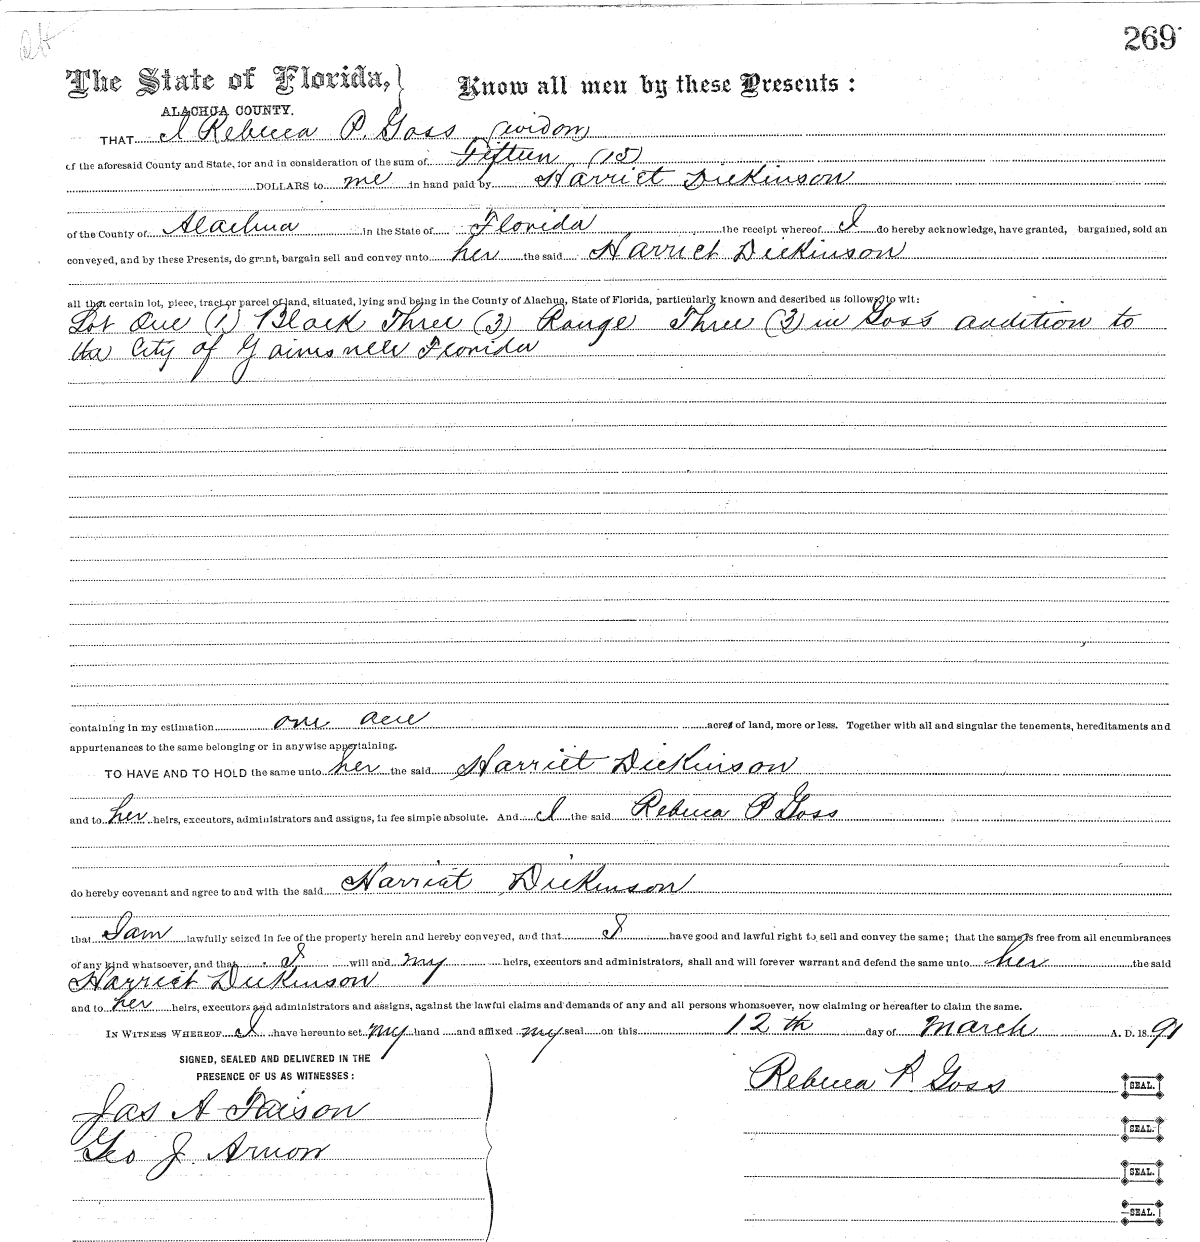 269
The State of Florida, } Know all men by these Presents :
ALACHUA COUNTY.
THAT I Rebecca P. Goss (widow)
of the aforesaid County and State, for and in consideration of the sum of Fifteen (15)
DOLLARS to me in hand paid by Harriet Dickinson
of the County of Alachua in the State of Florida the receipt whereof I do hereby acknowledge, have granted, bargained, sold an
conveyed, and by these Presents, do grant, bargain sell and convey unto her the said Harriet Dickinson
all that certain lot, piece, tract or parcel of land, situated, lying and being in the County of Alachua, State of Florida, particularly known and described as follows to wit:
Lot One (1) Block Three (3) Range Three (3) in Goss addition to
the City of Gainesville Florida
containing in my estimation one acre acres of land, more or less. Together with all and singular the tenements, hereditaments and
appurtenances to the same belonging or in anywise appertaining.
TO HAVE AND TO HOLD the same unto her the said Harriet Dickinson
and to her heirs, executors, administrators and assigns, in fee simple absolute. And I the said Rebecca P Goss
do hereby covenant and agree to and with the said Harriet Dickinson
that I am lawfully seized in fee of the property herein and hereby conveyed, and that I have good and lawful right to sell and convey the same; that the same is free from all encumbrances
of any kind whatsoever, and that I will and my heirs, executors and administrators, shall and will forever warrant and defend the same unto her the said
Harriet Dickinson
and to her heirs, executors and administrators and assigns, against the lawful claims and demands of any and all persons whomsoever, now claiming or hereafter to claim the same.
IN WITNESS WHEREOF I have hereunto set my hand and affixed my seal on this 12th day of March A. D. 1891
SIGNED, SEALED AND DELIVERED IN THE
PRESENCE OF US AS WITNESSES :
Jas A Faison
Geo J. Arnow
Rebecca P. Goss SEAL.
SEAL.
SEAL.
SEAL.